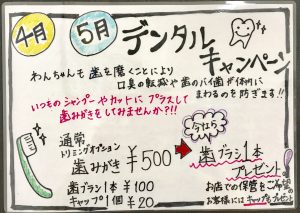 4月 5月 デンタルキャンペーン
わんちゃんも 歯を磨くことにより
口臭の軽減や 歯のバイ菌が体内に
まわるのを防ぎます!!
いつものシャンプーやカットに プラスして
歯みがきをしてみませんか?!!
通常
トリミングオプション
歯みがき ¥500
今なら
歯ブラシ1本
プレゼント
歯ブラシ1本 ¥100
キャップ1個 ¥20
お店での保管をご希望の
お客様には キャップもプレゼント